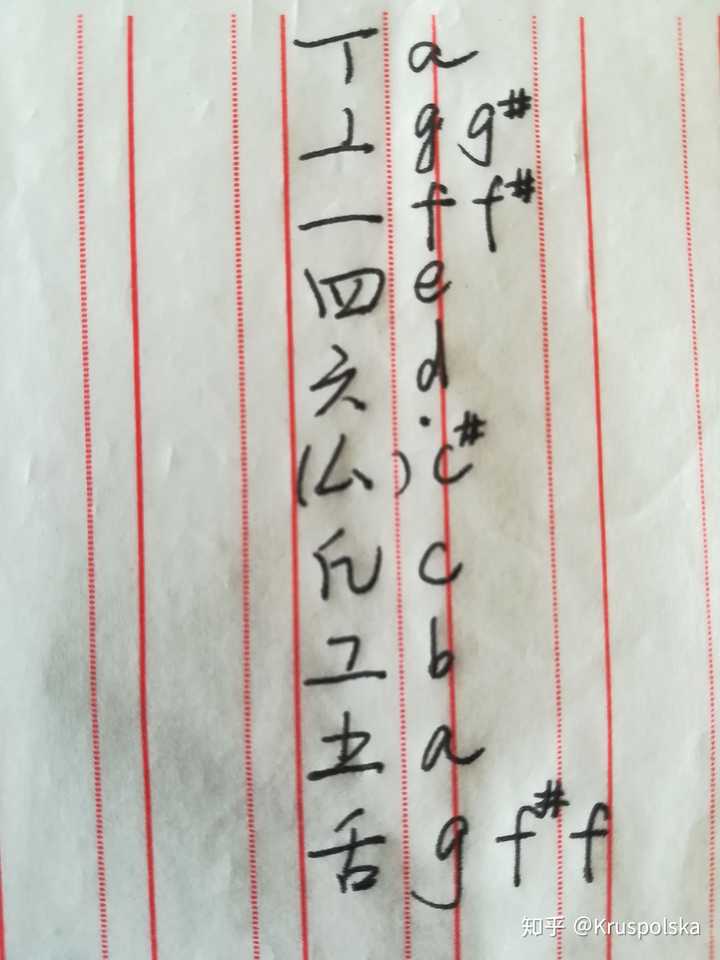 丅 a
丄 g g#
一 f f#
四 e
六 d
(厶) c#
凡 c
工 b
五 a
舌 g f# f
知乎 @Kruspolska